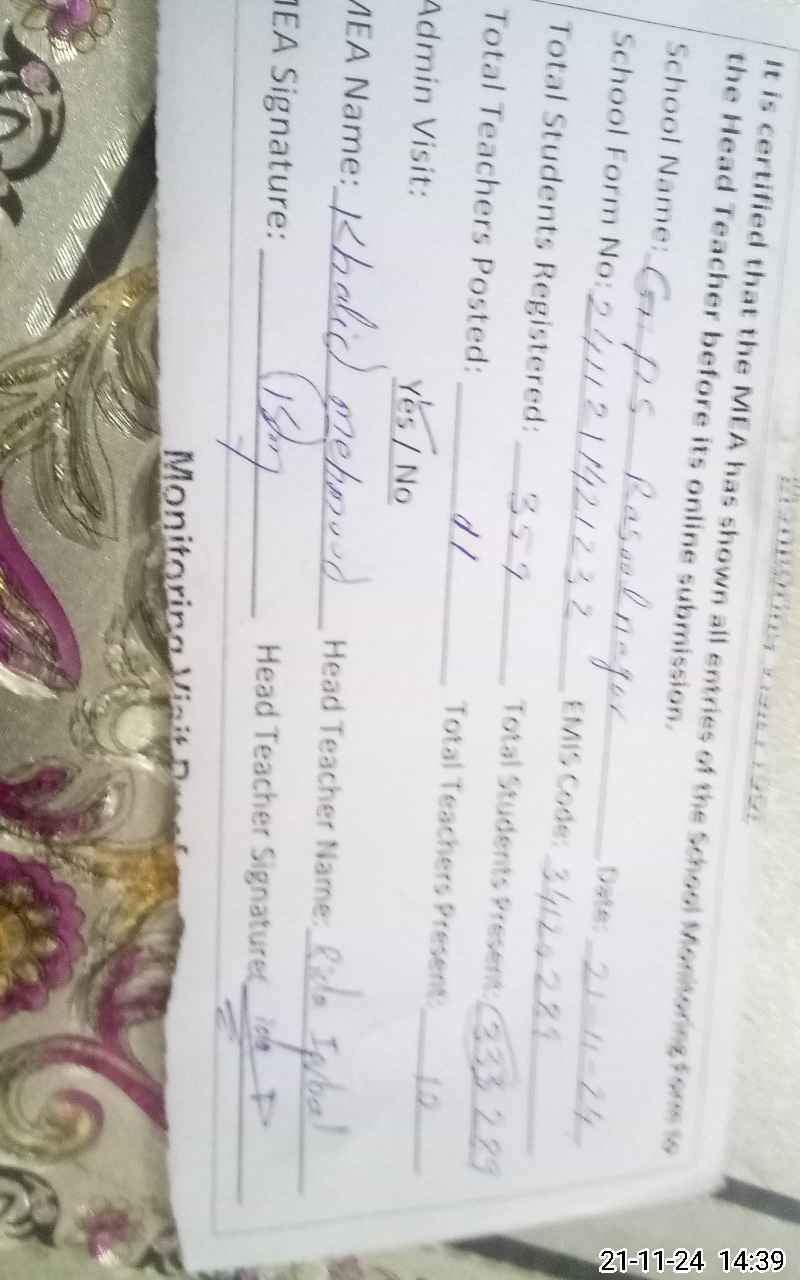 It is certified that the MEA has shown all entries of the School Monitoring Form to
the Head Teacher before its online submission.
School Name: GGPS Rasool nagar Date: 21-11-24
School Form No: EMIS Code:
Total Students Registered: 359 Total Students Present: 333 289
Total Teachers Posted: Total Teachers Present: 10
Admin Visit: Yes / No
MEA Name: Khalid mehmood Head Teacher Name: Rida Iqbal
MEA Signature: Head Teacher Signature:
Monitoring Visit Proof
21-11-24 14:39